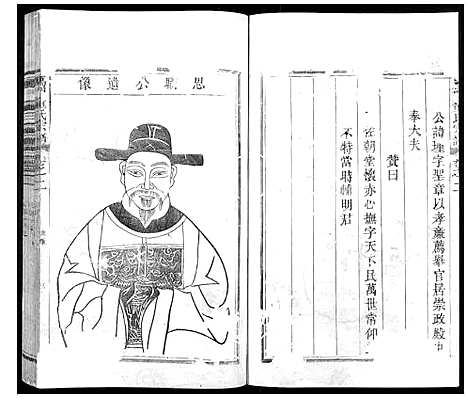 公諱珵字聖章以孝廉薦舉官居崇政殿
奉大夫
贊曰
在朝堂懷赤心撫字天下民萬世常仰
不特當時輔明君
思聰公遺像
氏宗譜